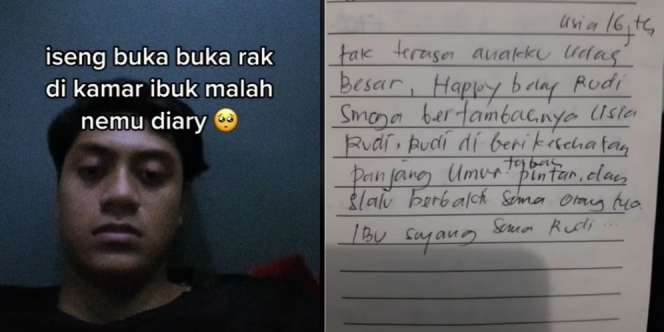 iseng buka buka rak
di kamar ibuk malah
nemu diary 🥺
usia 16 th
tak terasa anakku udag
Besar, Happy bday Rudi
Smoga bertambahnya usia
Rudi, Rudi di beri kesehatan
tabah
panjang umur pintar, dan
slalu berbakti sama orang tua
IBU sayang sama Rudi...